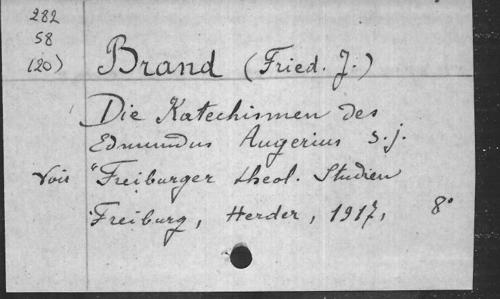 282
58
(20)
Brand (Fried. J.)
Die Katechismen des
Edmundus Augerius S.j.
Voir "Freiburger theol. Studien
Freiburg, Herder, 1917, 8°